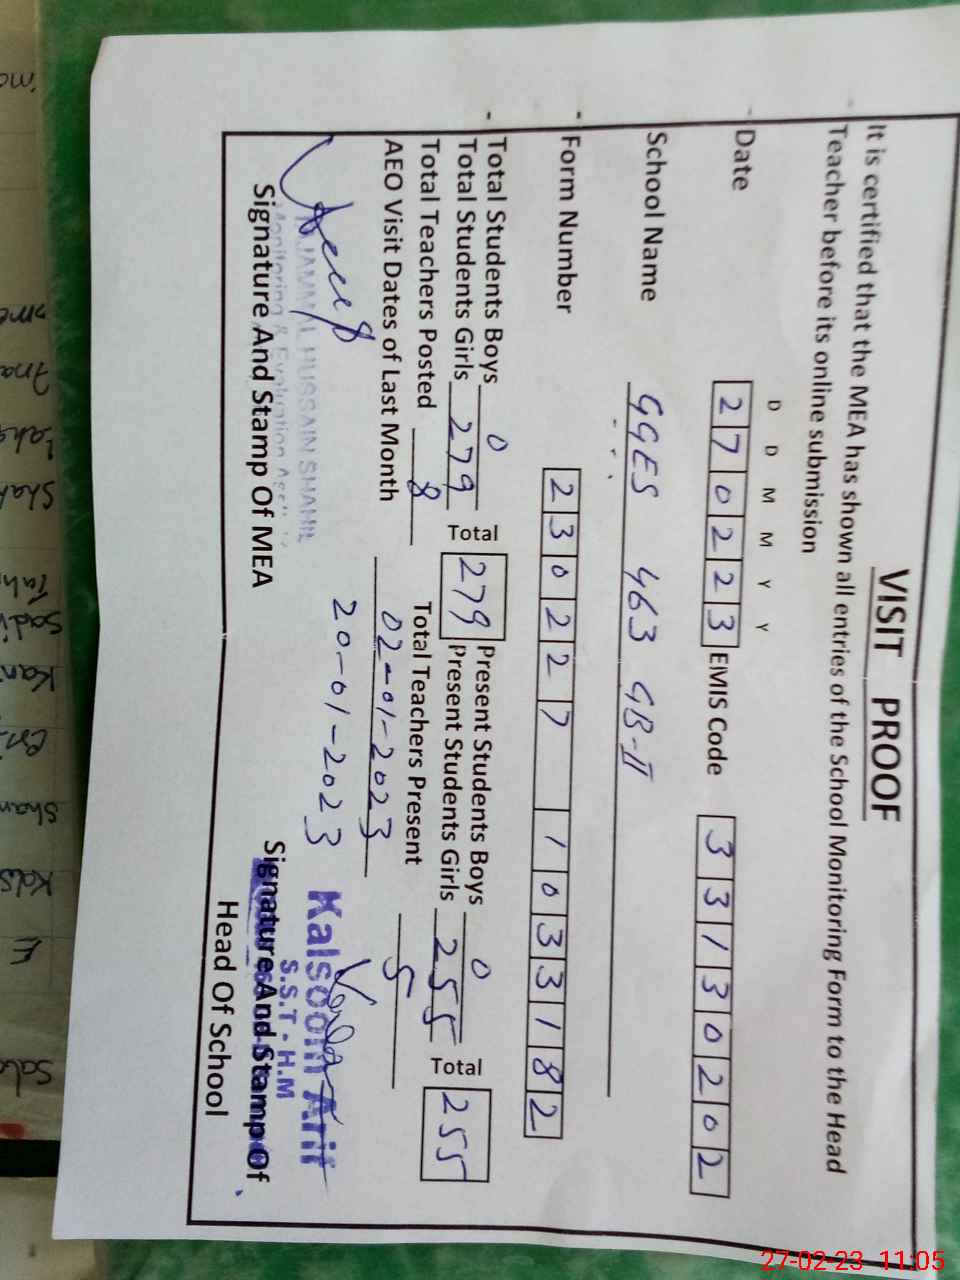 VISIT PROOF
It is certified that the MEA has shown all entries of the School Monitoring Form to the Head
Teacher before its online submission
D D M M Y Y
Date 270223 EMIS Code 33130202
School Name GGES 463 GB-II
Form Number 230227 1033182
Total Students Boys 0 Present Students Boys 0
Total Students Girls 279 Total 279 Present Students Girls 255 Total 255
Total Teachers Posted 8 Total Teachers Present 5
AEO Visit Dates of Last Month 02-01-2023
20-01-2023
HUSSAIN
Monitoring & Evaluation
Signature And Stamp Of MEA
Kalsoom Arif
S.S.T - H.M
Signature And Stamp Of
Head Of School
27-02-23 11:05